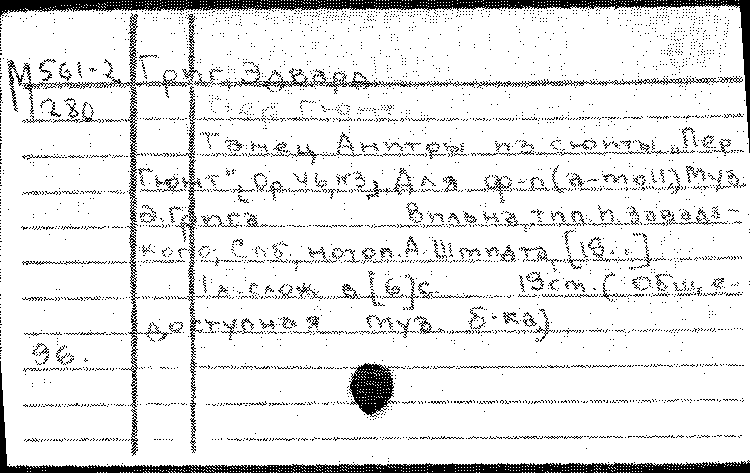 М 561-2 Григ, Эдвард
280 Пер Гюнт.
Танец Анитры из сюиты „Пер
Гюнт", [Op 46, №3], Для ф-п (a-moll) Муз
Э. Грига Вильна, тип. П. Завадз-
кого, Спб, нотоп. А. Шмидта, [18..]
1 л. слож в [6] с. 19 ст. (Общ е-
доступная муз. б-ка)
96.